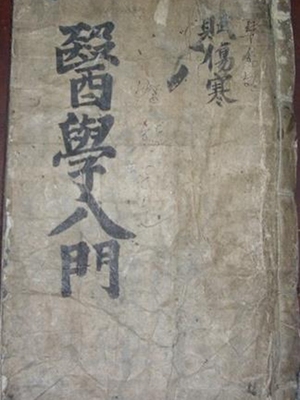 賦傷寒
醫學入門